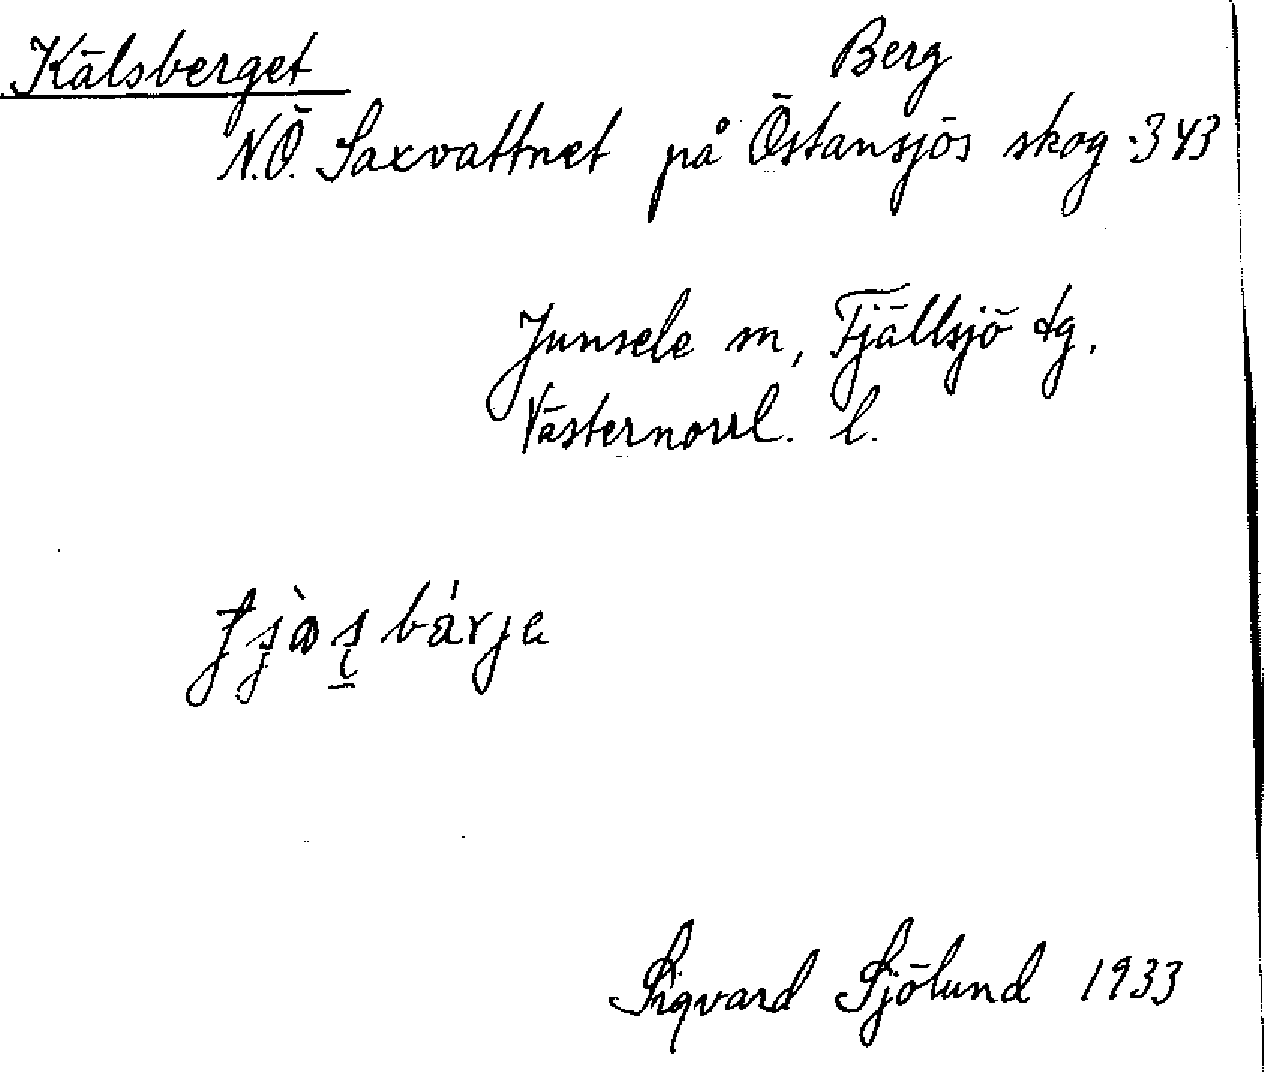 Kälsberget Berg
N.Ö. Saxvattnet på Östansjös skog 343
Junsele sn, Fjällsjö tg.
Västernorrl. l.
Sigvard Sjölund 1933